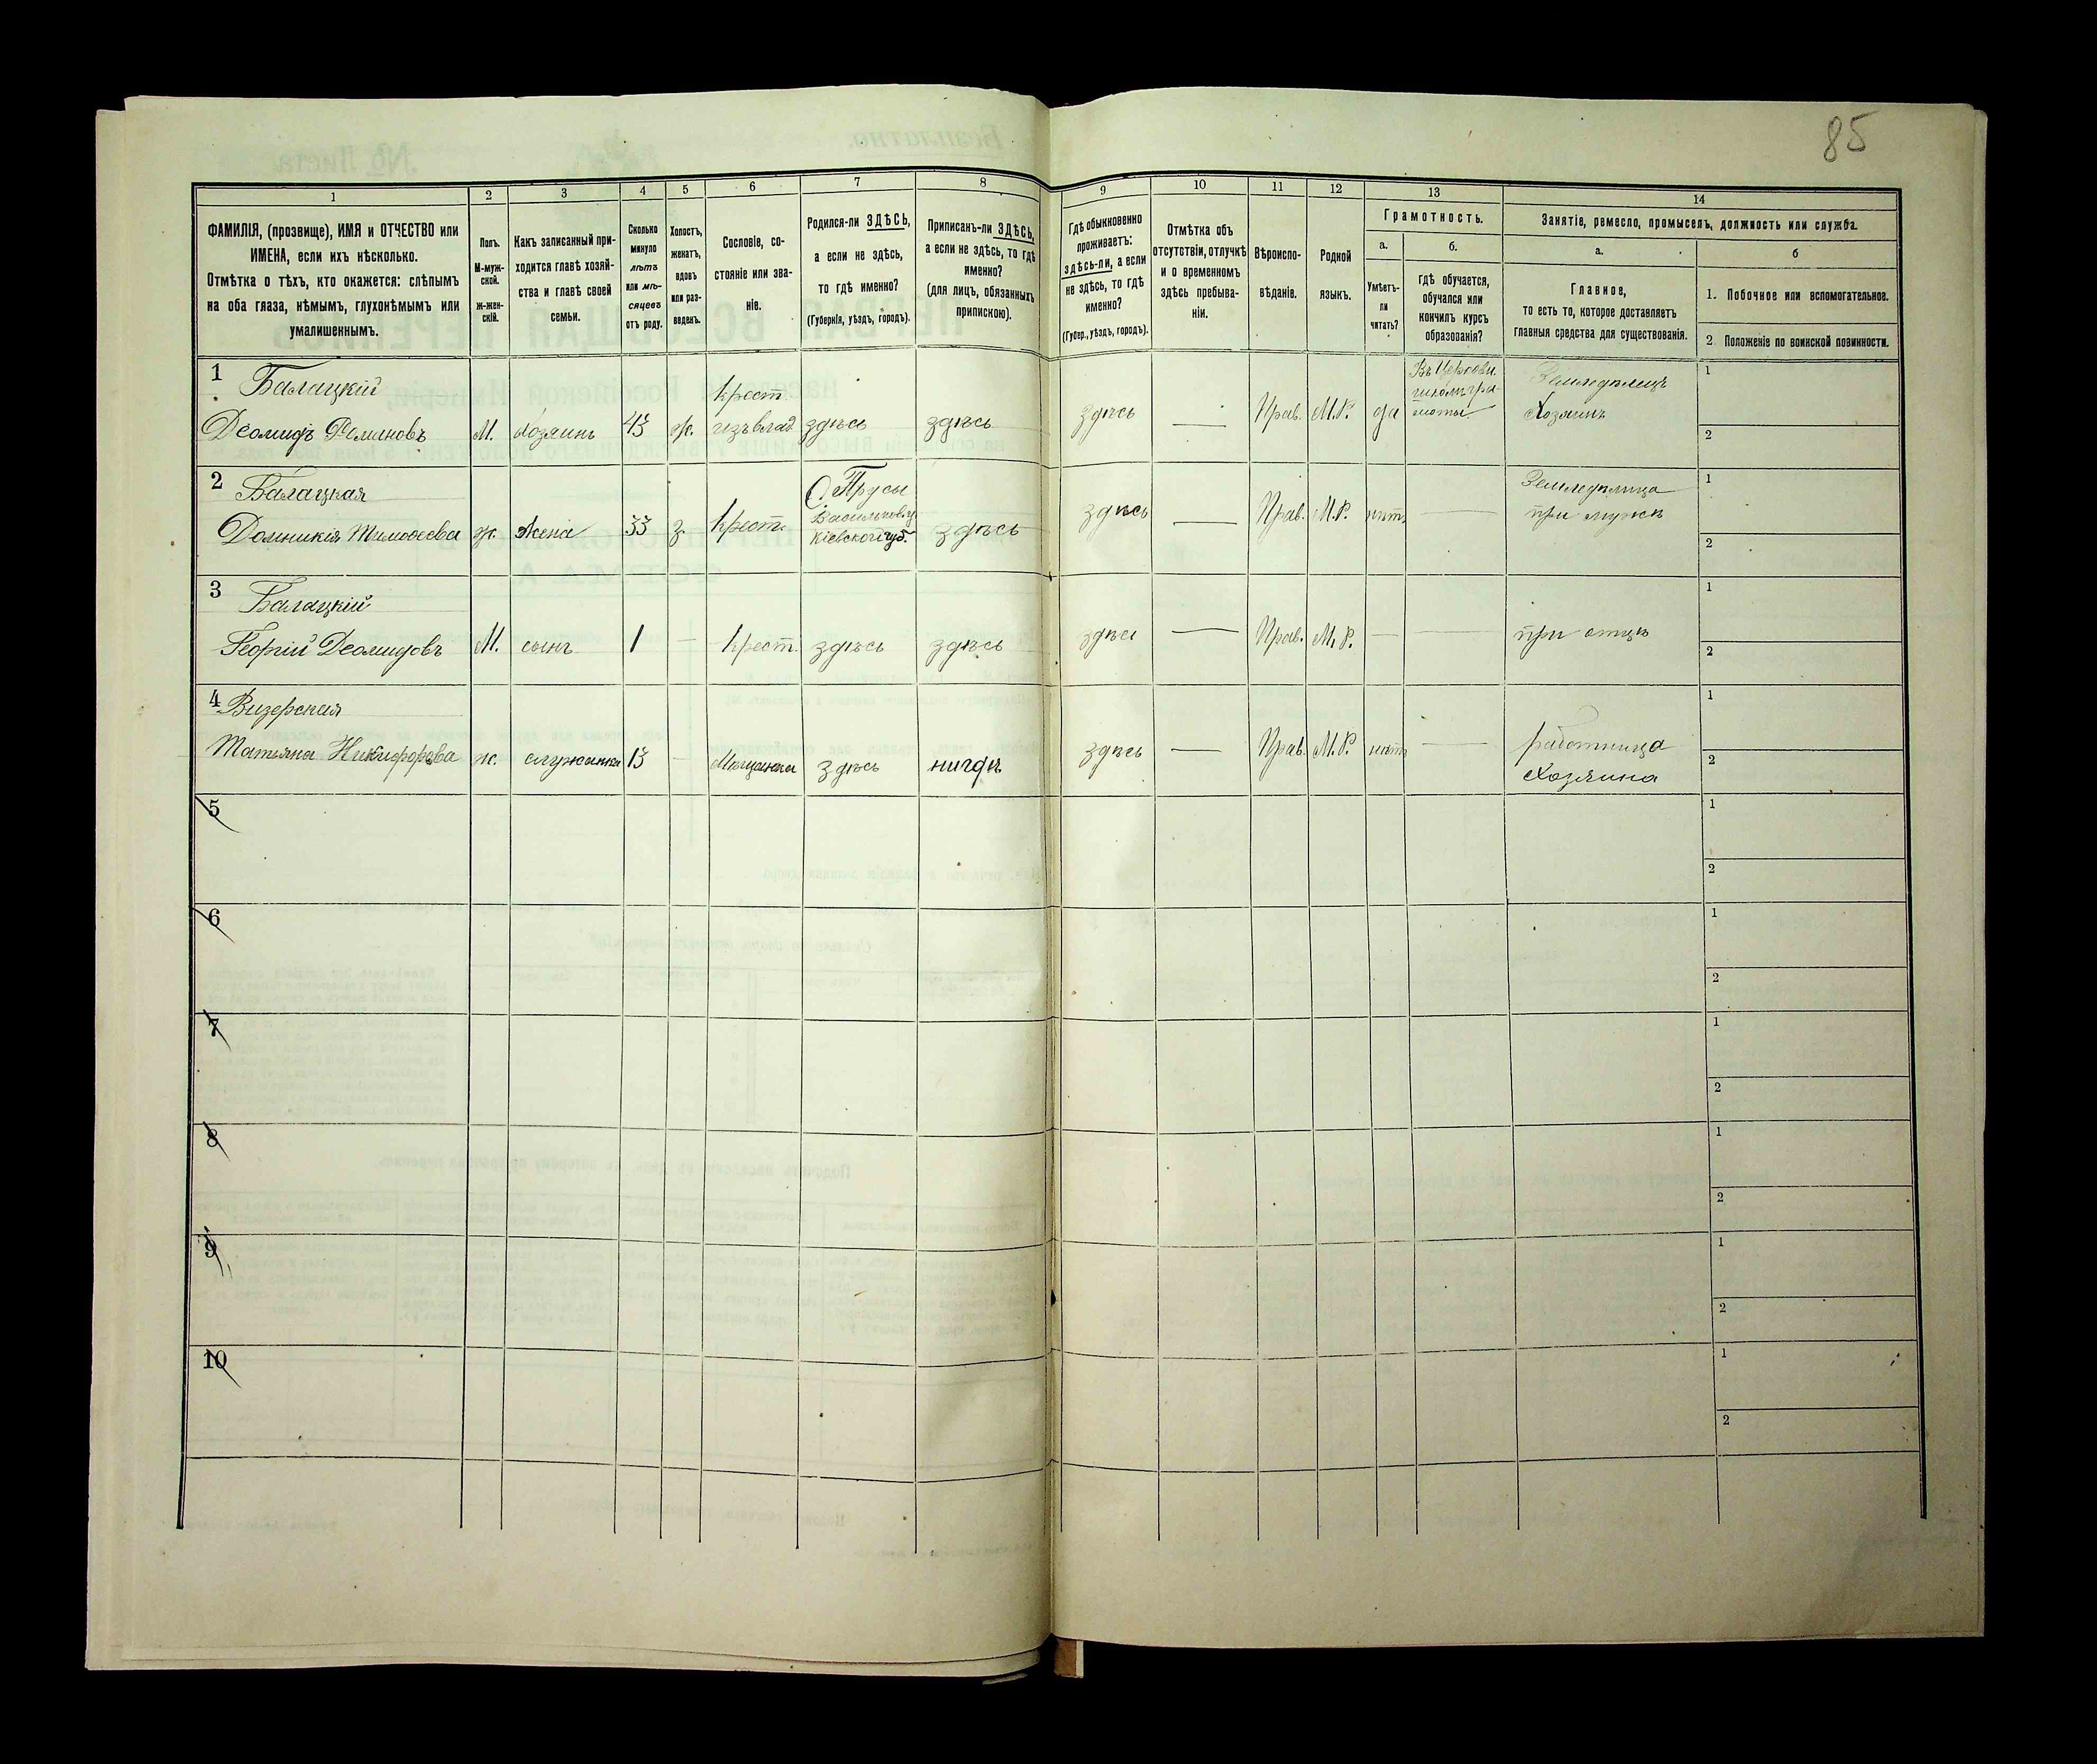 85
1
2
3
4
5
6
7
8
9
10
11
12
13
14
ФАМИЛІЯ, (прозвище), ИМЯ и ОТЧЕСТВО или
ИМЕНА, если ихъ нѣсколько.
Отмѣтка о тѣхъ, кто окажется: слѣпымъ
на оба глаза, нѣмымъ, глухонѣмымъ или
умалишеннымъ.
Полъ.
М-муж-
ской.
ж-жен-
скій.
Какъ записанный при-
ходится главѣ хозяй-
ства и главѣ своей
семьи.
Сколько
минуло
лѣтъ
или мѣ-
сяцевъ
отъ роду.
Холостъ,
женатъ,
вдовъ
или раз-
веденъ.
Сословіе, со-
стояніе или зва-
ніе.
Родился-ли ЗДѢСЬ,
а если не здѣсь,
то гдѣ именно?
(Губернія, уѣздъ, городъ).
Приписанъ-ли ЗДѢСЬ,
а если не здѣсь, то гдѣ
именно?
(для лицъ, обязанныхъ
припискою).
Гдѣ обыкновенно
проживаетъ:
здѣсь-ли, а если
не здѣсь, то гдѣ
именно?
(Губер., уѣздъ, городъ).
Отмѣтка объ
отсутствіи, отлучкѣ
и о временномъ
здѣсь пребыва-
ніи.
Вѣроиспо-
вѣданіе.
Родной
языкъ.
Грамотность.
а.
Умѣетъ-
ли
читать?
б.
Гдѣ обучается,
обучался или
кончилъ курсъ
образованія?
Занятіе, ремесло, промыселъ, должность или служба.
а.
Главное,
то есть то, которое доставляетъ
главныя средства для существованія.
б
1. Побочное или вспомогательное.
2. Положеніе по воинской повинности.
1 Балацкій
Деомидъ Романовъ
М.
хозяинъ
43
ж.
крест.
изъ влад.
здѣсь
здѣсь
здѣсь
Прав.
М.Р.
да
Въ Церковн.
школѣ гра-
моты
Земледѣлецъ
Хозяинъ
1
2
2 Балацкая
Домникія Тимоѳеева
ж.
жена
33
з.
крест.
С. Прусы
Васильков.у.
Кіевской губ.
здѣсь
здѣсь
Прав.
М.Р.
нѣтъ
Земледѣлица
при мужѣ
1
2
3 Балацкій
Георгій Деомидовъ
М.
сынъ
1
крест.
здѣсь
здѣсь
здѣсь
Прав.
М.Р.
при отцѣ
1
2
4 Визерская
Татьяна Никифорова
ж.
служанка
13
Мѣщанка
здѣсь
нигдѣ
здѣсь
Прав.
М.Р.
нѣтъ
работница
Хозяина
1
2
5
1
2
6
1
2
7
1
2
8
1
2
9
1
2
10
1
2